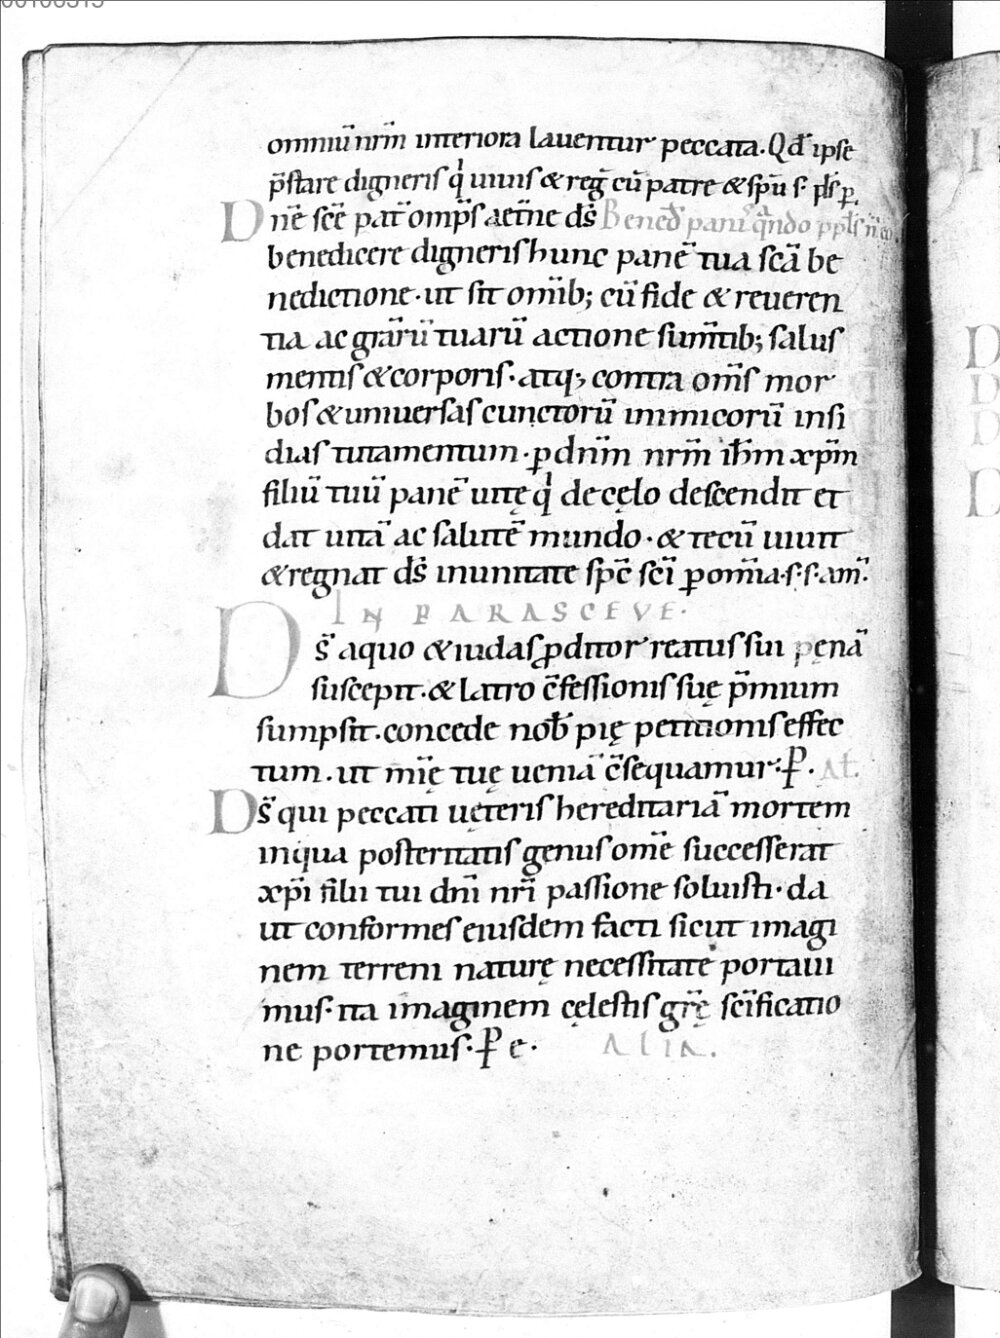 omniū nr̄m interiora lauentur peccata. Qd̄ ipse
p̄stare digneris q̇ uiuis & reg̅ cū patre & sp̄u s̄.
Dn̄e sc̄e pat̄ omp̄s aet̄ne ds̄ Bened̄ panis q̄ndo
benedicere digneris hunc panē tua sc̄a be
nedictione · ut sit om̄ib; cū fide & reueren
tia ac gr̄arū tuarū actione sum̄tib; salus
mentis & corporis · atq; contra om̄s mor
bos & uniuersas cunctorū inimicorū insi
dias tutamentum · ꝑ dn̄m nr̄m ih̄m xp̄m
filiū tuū panē uitę q̇ de cęlo descendit et
dat uitā ac salutē mundo · & tecū uiuit
& regnat ds̄ inunitate sp̄c sc̄i ꝑ om̄ia · s · s · am̄.
IN PARASCEVE.
Ds̄ aquo & iudas ꝓditor reatus sui penā
suscepit · & latro c̄fessionis suę p̄mium
sumpsit · concede nob̄ pię petitionis effec
tum · ut mīę tuę ueniā c̄sequamur : P̄ . Al̄.
Ds̄ qui peccati ueteris hereditariā mortem
inqua posteritatis genus ome̅ successerat
xp̄i filii tui dn̄i nr̄i passione soluisti · da
ut conformes eiusdem facti sicut imagi
nem terreni naturę necessitate portaui
mus · ita imaginem cęlestis gr̄ę sc̄ificatio
ne portemus · P̄ e · ALIA.